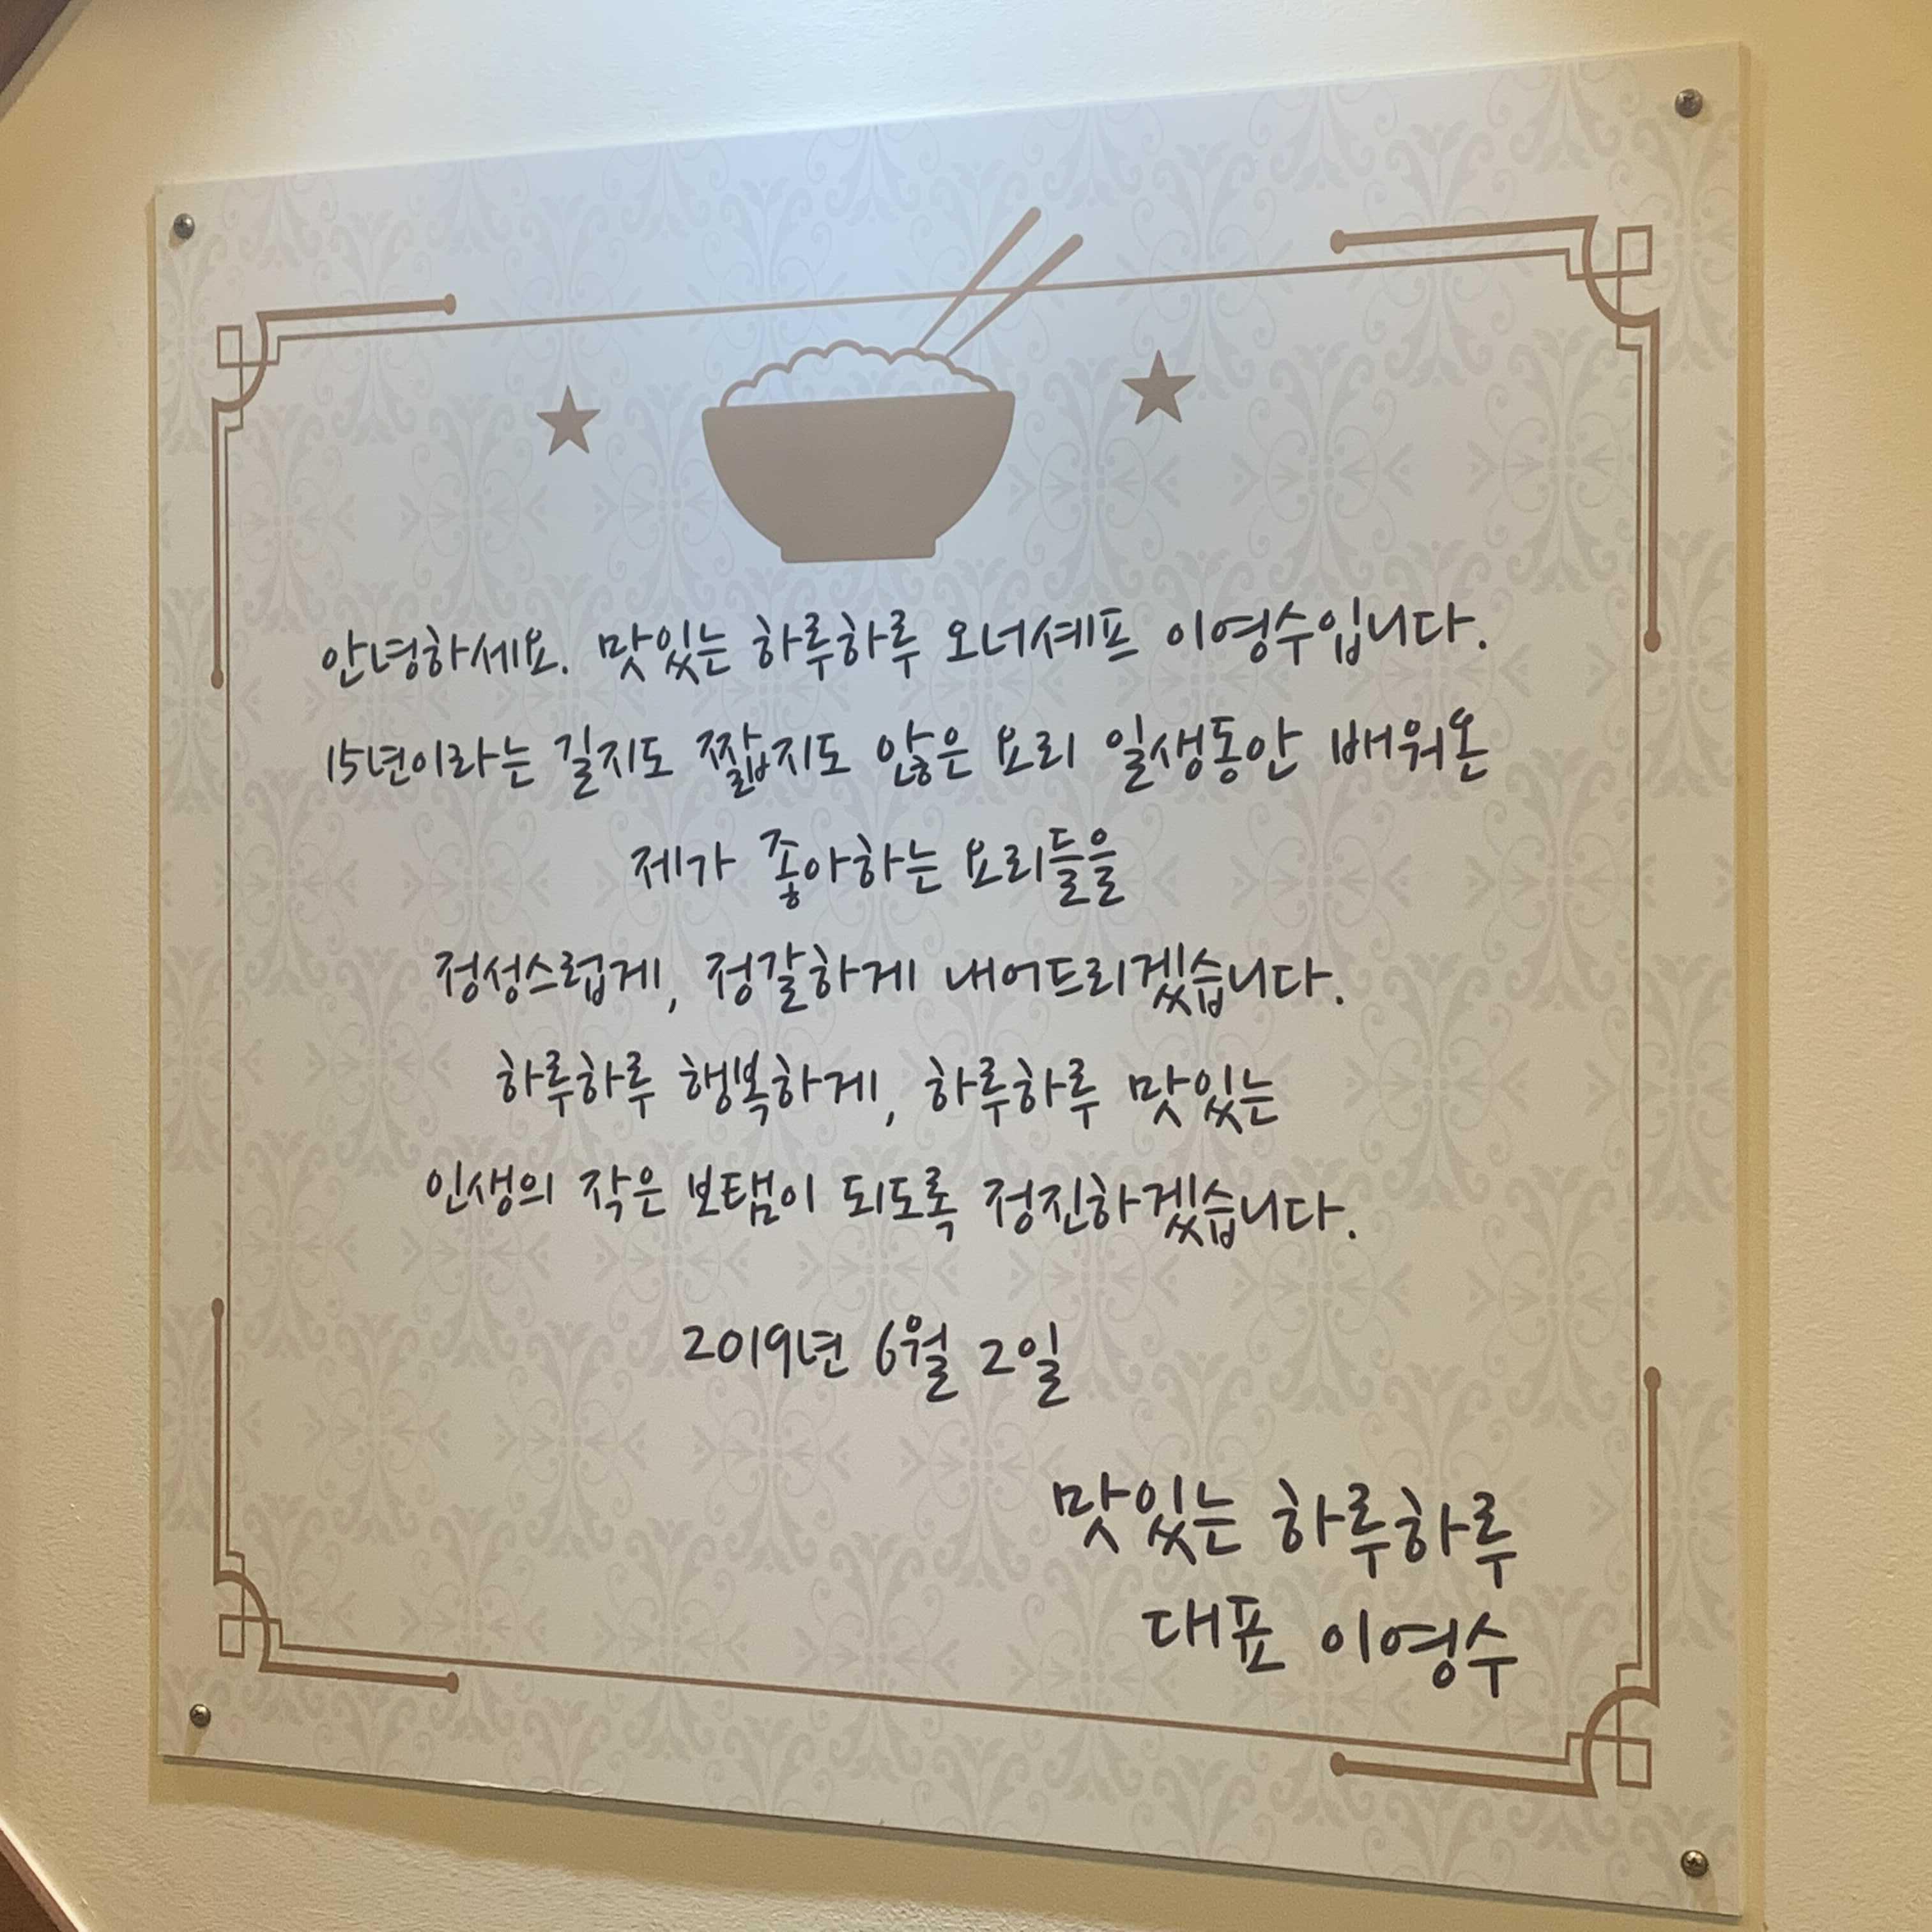 안녕하세요. 맛있는 하루하루 오너셰프 이영수입니다.
15년이라는 길지도 짧지도 않은 요리 일생동안 배워온
제가 좋아하는 요리들을
정성스럽게, 정갈하게 내어드리겠습니다.
하루하루 행복하게, 하루하루 맛있는
인생의 작은 보탬이 되도록 정진하겠습니다.
2019년 6월 2일
맛있는 하루하루
대표 이영수